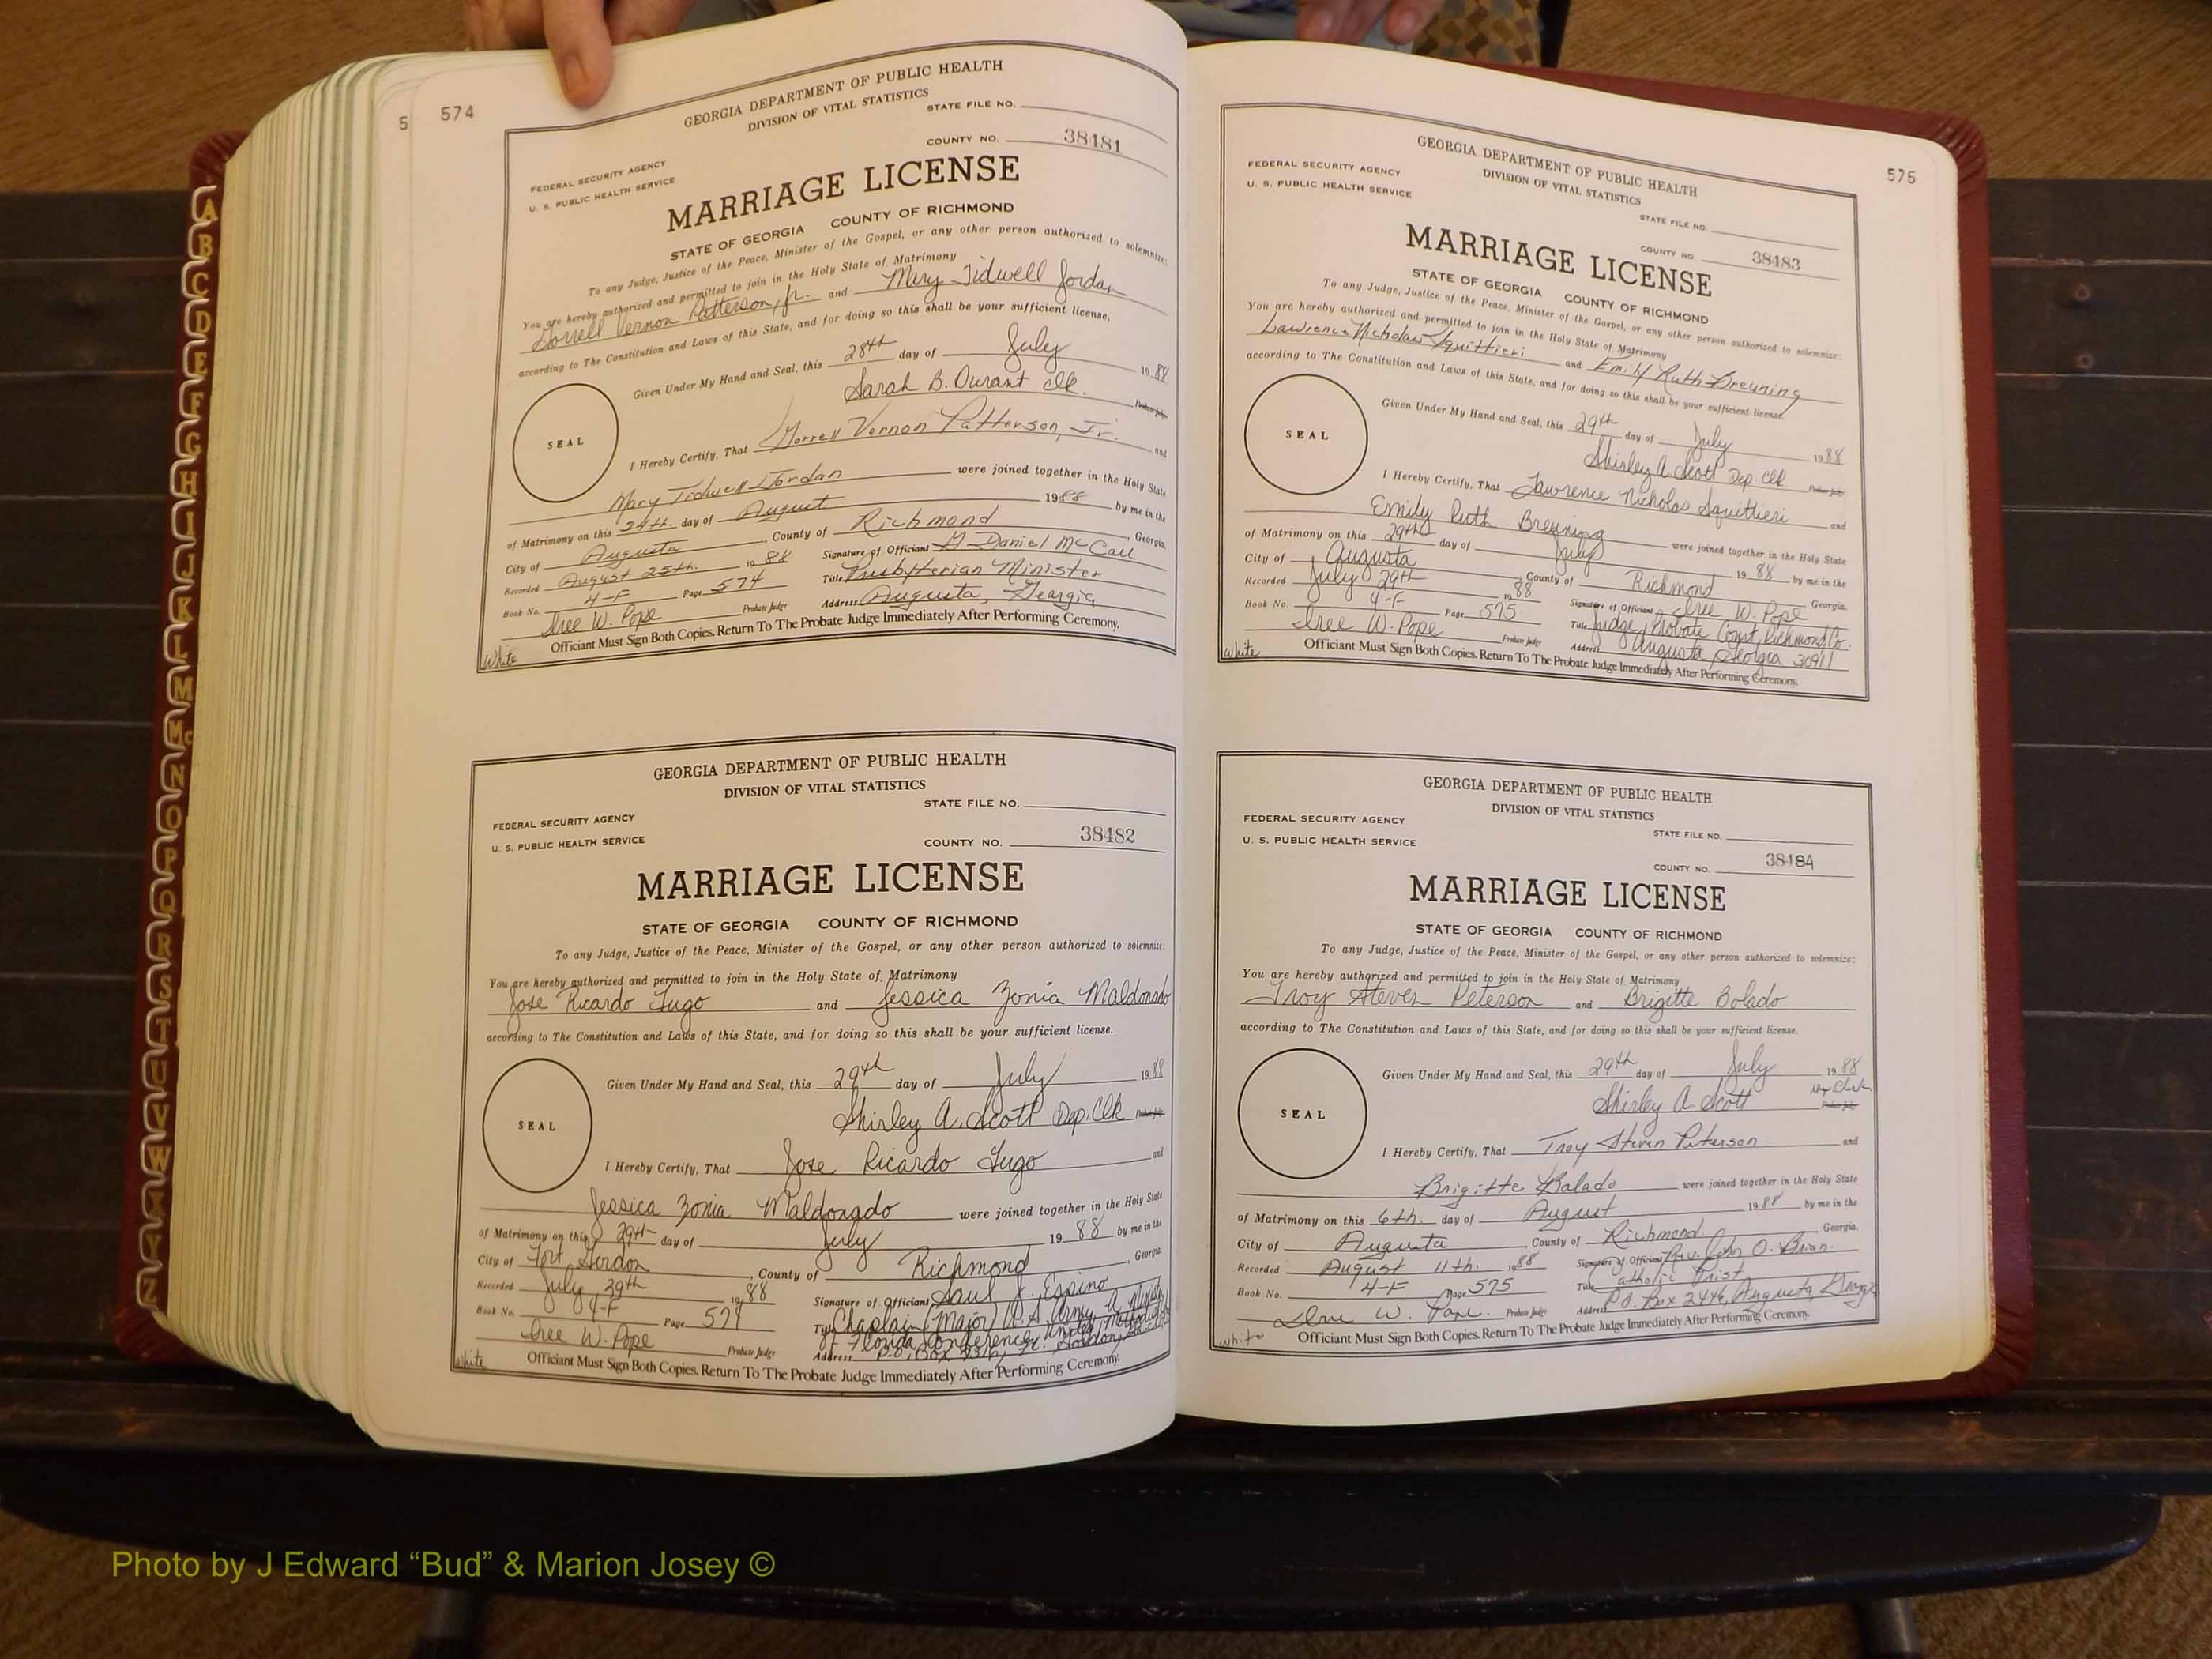 5 574
GEORGIA DEPARTMENT OF PUBLIC HEALTH
DIVISION OF VITAL STATISTICS
STATE FILE NO.
COUNTY NO. 38481
FEDERAL SECURITY AGENCY
U. S. PUBLIC HEALTH SERVICE
MARRIAGE LICENSE
STATE OF GEORGIA COUNTY OF RICHMOND
To any Judge, Justice of the Peace, Minister of the Gospel, or any other person authorized to solemnize:
You are hereby authorized and permitted to join in the Holy State of Matrimony
Vernon Patterson, Jr. and Mary Tidwell Jordan
according to The Constitution and Laws of this State, and for doing so this shall be your sufficient license.
Given Under My Hand and Seal, this 28th day of July 1988
Sarah B. Durant Clk.
SEAL
I Hereby Certify, That Vernon Patterson, Jr. and
Mary Tidwell Jordan were joined together in the Holy State
of Matrimony on this 24th. day of August 1988 by me in the
City of Augusta, County of Richmond, Georgia.
Recorded August 25th. 1988 Signature of Officiant Daniel McCall
Book No. 4-F Page 574 Title Presbyterian Minister
Iree W. Pope Probate Judge Address Augusta, Georgia
Officiant Must Sign Both Copies. Return To The Probate Judge Immediately After Performing Ceremony.
White
GEORGIA DEPARTMENT OF PUBLIC HEALTH
DIVISION OF VITAL STATISTICS
STATE FILE NO.
FEDERAL SECURITY AGENCY
U. S. PUBLIC HEALTH SERVICE
COUNTY NO. 38482
MARRIAGE LICENSE
STATE OF GEORGIA COUNTY OF RICHMOND
To any Judge, Justice of the Peace, Minister of the Gospel, or any other person authorized to solemnize:
You are hereby authorized and permitted to join in the Holy State of Matrimony
Jose Ricardo Lugo and Jessica Zonia Maldonado
according to The Constitution and Laws of this State, and for doing so this shall be your sufficient license.
Given Under My Hand and Seal, this 29th day of July 1988
Shirley A. Scott Dep. Clk
SEAL
I Hereby Certify, That Jose Ricardo Lugo and
Jessica Zonia Maldonado were joined together in the Holy State
of Matrimony on this 29th day of July 1988 by me in the
City of Fort Gordon, County of Richmond, Georgia.
Recorded July 29th 1988 Signature of Officiant Saul J. Espino
Book No. 4-F Page 574 Title Chaplain (Major) U.S. Army,
of Florida Conference, United Methodist
Iree W. Pope Probate Judge Address P.O. Box Ft. Gordon,
Officiant Must Sign Both Copies. Return To The Probate Judge Immediately After Performing Ceremony.
White
575
GEORGIA DEPARTMENT OF PUBLIC HEALTH
DIVISION OF VITAL STATISTICS
FEDERAL SECURITY AGENCY
U. S. PUBLIC HEALTH SERVICE
STATE FILE NO.
COUNTY NO. 38483
MARRIAGE LICENSE
STATE OF GEORGIA COUNTY OF RICHMOND
To any Judge, Justice of the Peace, Minister of the Gospel, or any other person authorized to solemnize:
You are hereby authorized and permitted to join in the Holy State of Matrimony
Lawrence Nicholas Squittieri and Emily Ruth Breuning
according to The Constitution and Laws of this State, and for doing so this shall be your sufficient license.
Given Under My Hand and Seal, this 29th day of July 1988
Shirley A. Scott Dep. Clk
SEAL
I Hereby Certify, That Lawrence Nicholas Squittieri and
Emily Ruth Breuning were joined together in the Holy State
of Matrimony on this 29th day of July 1988 by me in the
City of Augusta, County of Richmond Georgia.
Recorded July 29th 1988 Signature of Officiant Iree W. Pope
Book No. 4-F Page 575 Title Judge, Probate Court, Richmond Co.
Iree W. Pope Probate Judge Address Augusta, Georgia 30911
Officiant Must Sign Both Copies. Return To The Probate Judge Immediately After Performing Ceremony.
White
GEORGIA DEPARTMENT OF PUBLIC HEALTH
DIVISION OF VITAL STATISTICS
FEDERAL SECURITY AGENCY
U. S. PUBLIC HEALTH SERVICE
STATE FILE NO.
COUNTY NO. 38484
MARRIAGE LICENSE
STATE OF GEORGIA COUNTY OF RICHMOND
To any Judge, Justice of the Peace, Minister of the Gospel, or any other person authorized to solemnize:
You are hereby authorized and permitted to join in the Holy State of Matrimony
Troy Steven Peterson and Brigitte Bolado
according to The Constitution and Laws of this State, and for doing so this shall be your sufficient license.
Given Under My Hand and Seal, this 29th day of July 1988
Shirley A. Scott Dep Clerk
SEAL
I Hereby Certify, That Troy Steven Peterson and
Brigitte Balado were joined together in the Holy State
of Matrimony on this 6th. day of August 1988 by me in the
City of Augusta, County of Richmond Georgia.
Recorded August 11th. 1988 Signature of Officiant Rev. John O. Brian.
Book No. 4-F Page 575 Title Catholic Priest
W. Pope. Probate Judge Address P.O. Box 2446, Augusta, Georgia
Officiant Must Sign Both Copies. Return To The Probate Judge Immediately After Performing Ceremony.
White
A
B
C
D
E
F
G
H
I
J
K
L
M
Mc
N
O
P
Q
R
S
T
U
V
W
X
Y
Z
Photo by J Edward “Bud” & Marion Josey ©